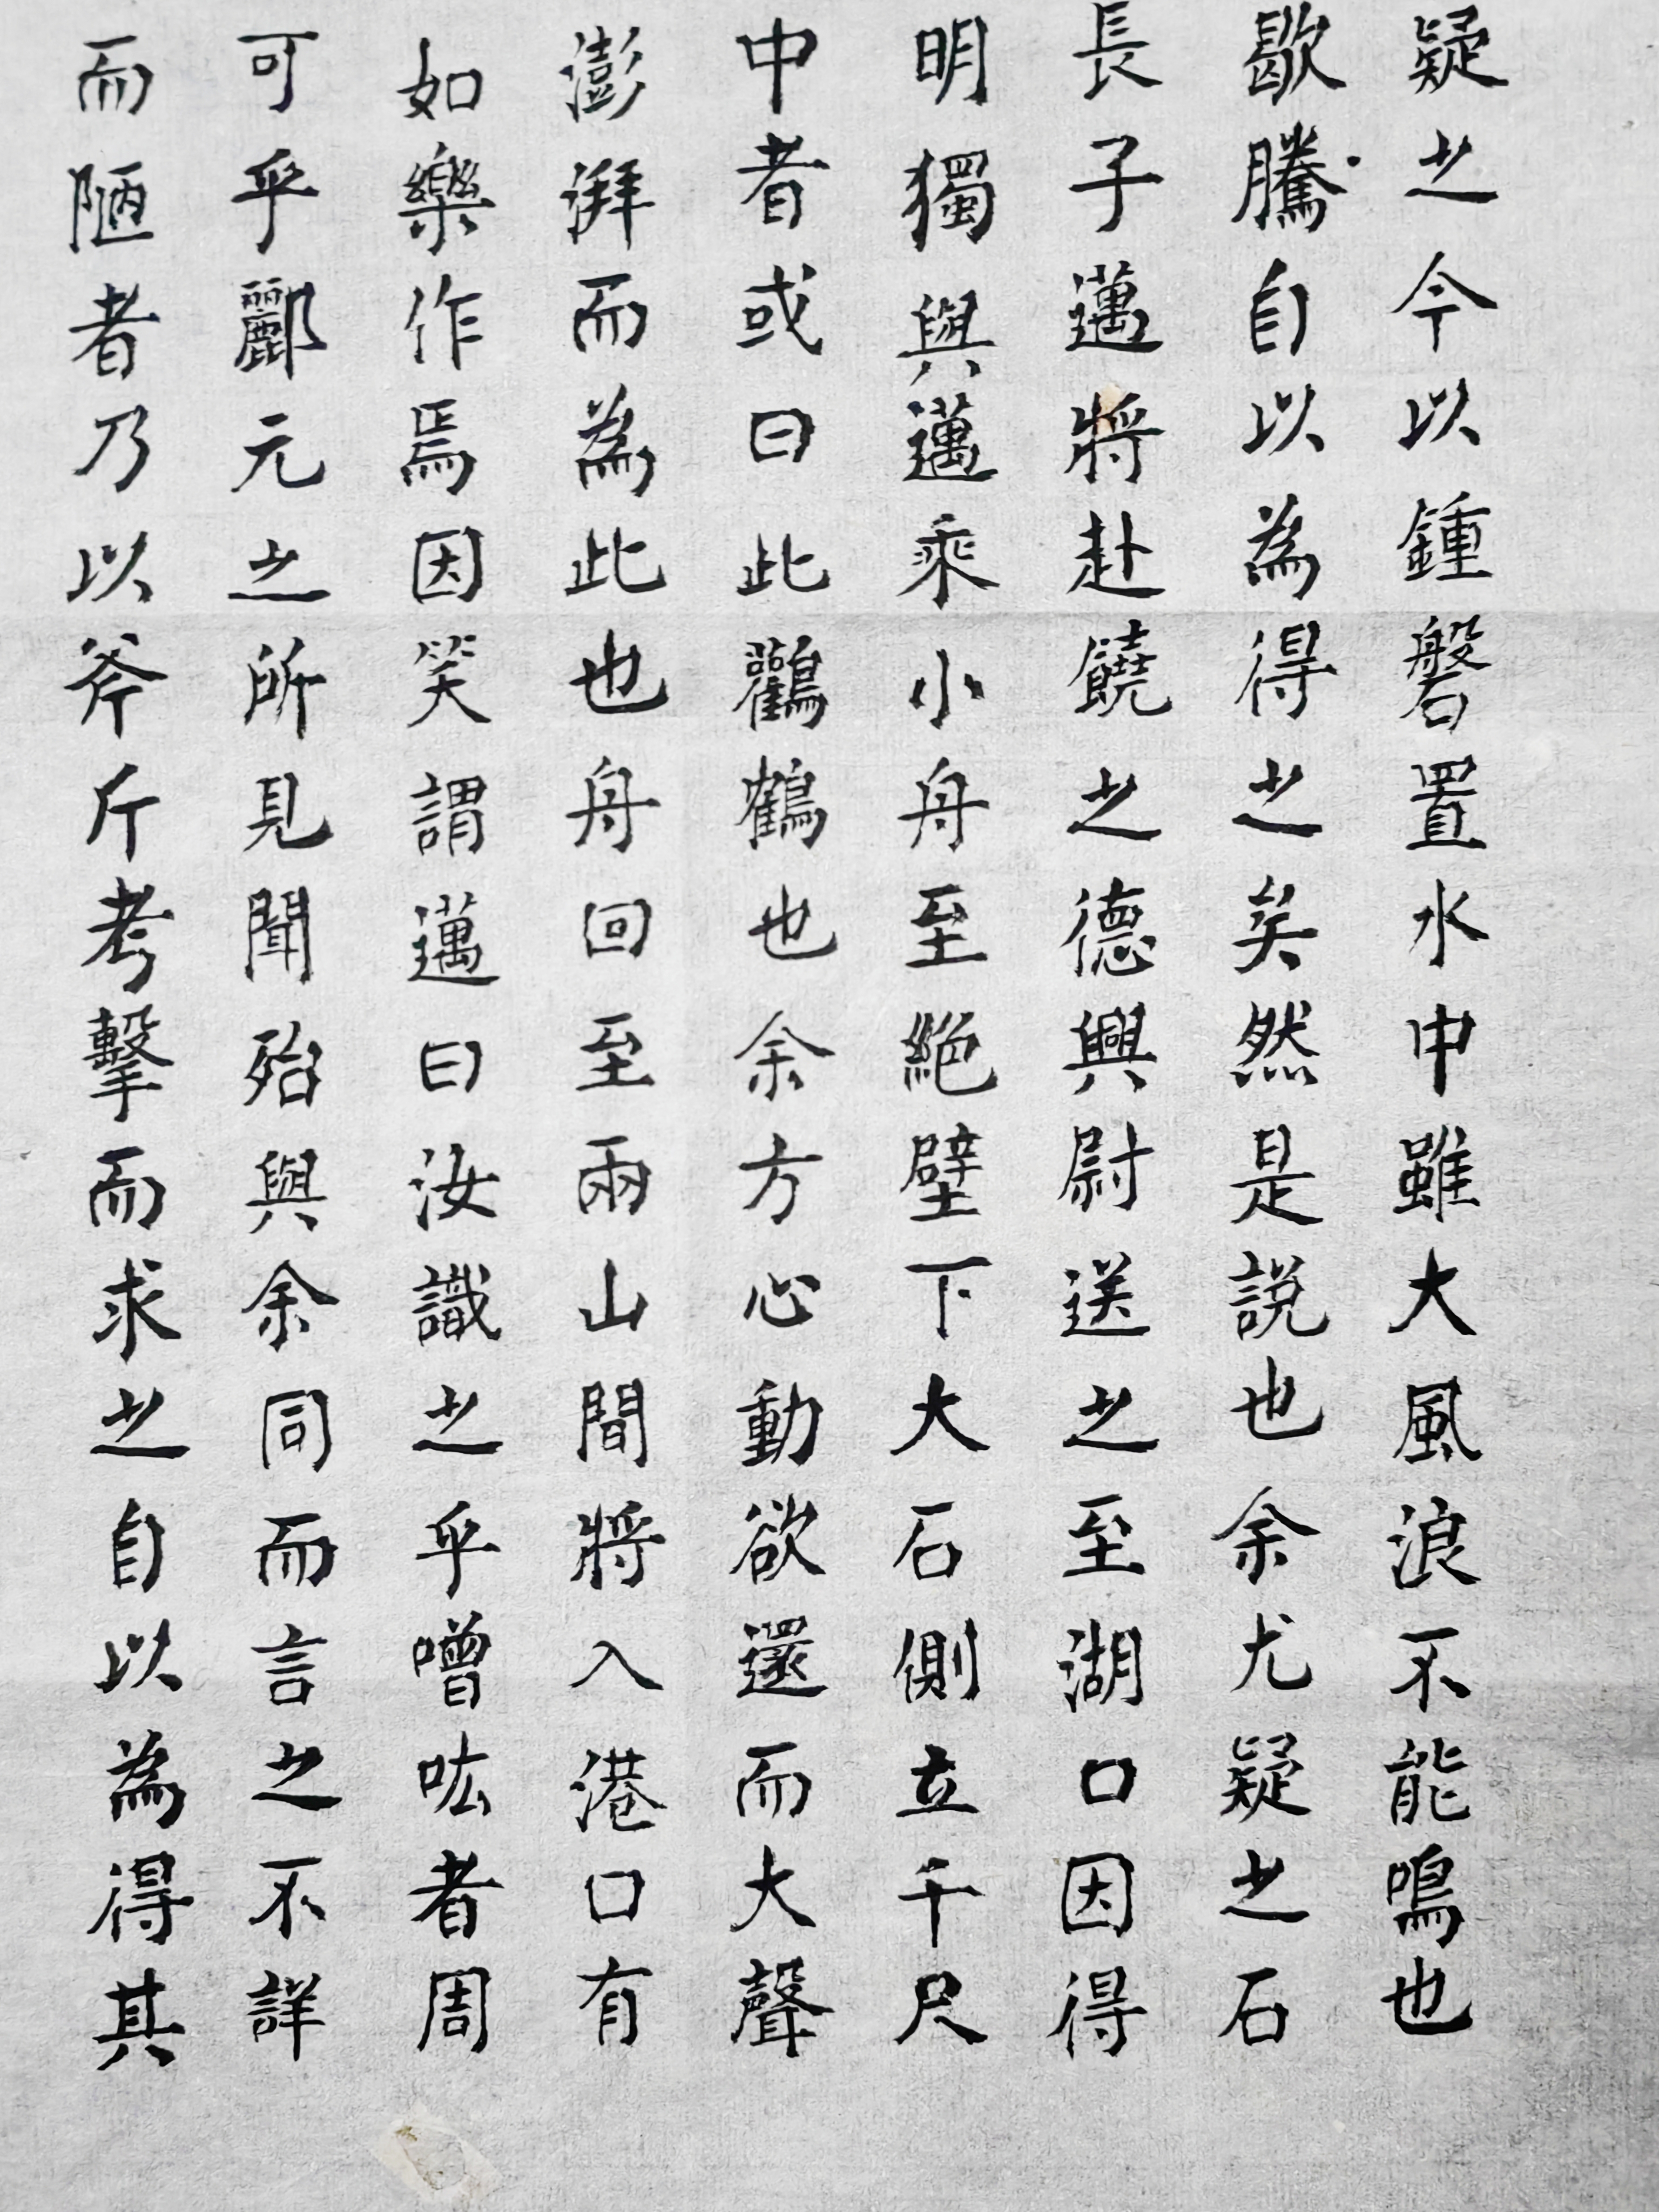 疑之今以鍾磐置水中雖大風浪不能鳴也
歇騰自以為得之矣然是說也余尤疑之石
長子邁將赴饒之德興尉送之至湖口因得
明獨與邁乘小舟至絕壁下大石側立千尺
中者或曰此鸛鶴也余方心動欲還而大聲
澎湃而為此也舟回至兩山間將入港口有
如樂作焉因笑謂邁曰汝識之乎噌吰者周
可乎酈元之所見聞殆與余同而言之不詳
而陋者乃以斧斤考擊而求之自以為得其